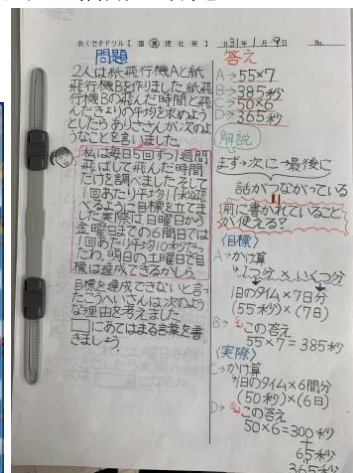 めくせがドリル【国 算 理 社 英】
H31年1月9日 No.
問題
2人は紙飛行機Aと紙
飛行機Bを作りました。紙飛
行機Bの飛んだ時間と飛
んだきょりの平均を求めよう
としたらありささんが次のよ
うなことを言いました。
私は毎日5回ずつ1週間
飛ばして飛んだ時間
だけを調べました。そして
1回あたり平均11秒飛
べるように目標を立てま
した。実際は日曜日から
金曜日までの6日間では
1回あたり平均10秒だっ
たわ。明日の土曜日で目
標は達成できるかしら。
目標を達成できないと言っ
たこうへいさんは次のよう
な理由を考えました
□にあてはまる言葉を書
きましょう。
答え
A→55×7
B→385秒
C→50×6
D→365秒
解説
まず→次に→最後に
話がつながっている
前に書かれていること
が使える?
〈目標〉
A→かけ算
1つ分×いくつ分
1日のタイム×7日分
(55秒分)×(7日)
B→この答え
55×7=385秒
〈実際〉
C→かけ算
1日のタイム×6日分
(50秒分)×(6日)
D→この答え
50×6=300秒
+
65秒
365秒